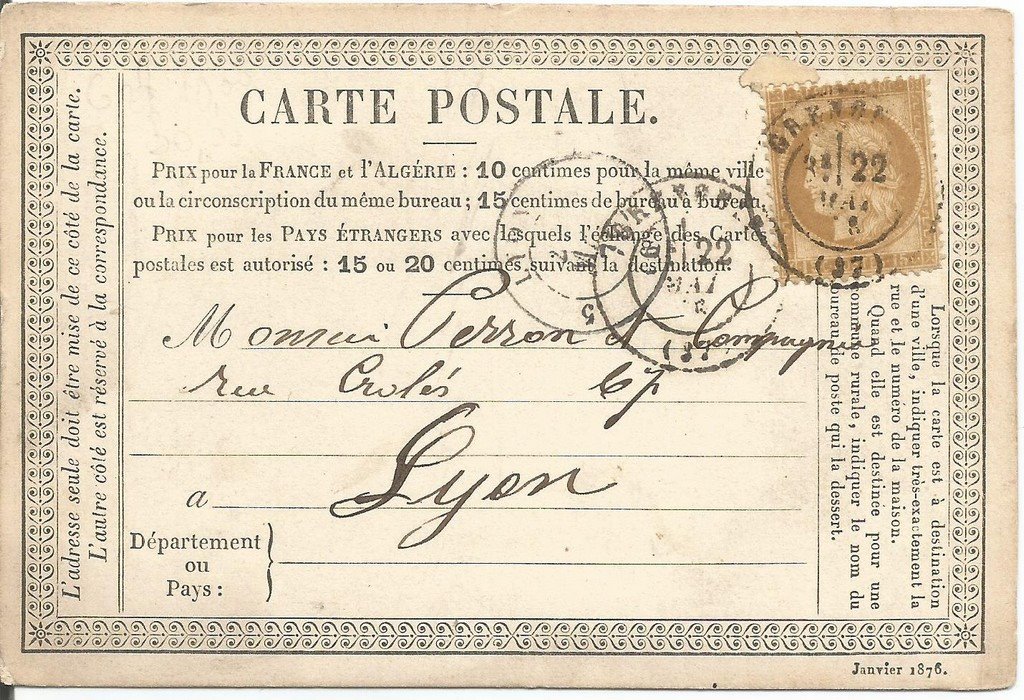 CARTE POSTALE.
PRIX pour la FRANCE et l'ALGÉRIE : 10 centimes pour la même ville
ou la circonscription du même bureau ; 15 centimes de bureau à bureau.
PRIX pour les PAYS ÉTRANGERS avec lesquels l'échange des Cartes
postales est autorisé : 15 ou 20 centimes, suivant la destination.
Monsieur Perron et Compagnie
rue
a Lyon
Département
ou
Pays :
L'adresse seule doit être mise de ce côté de la carte.
L'autre côté est réservé à la correspondance.
Lorsque la carte est à destination
d'une ville, indiquer très-exactement la
rue et le numéro de la maison.
Quand elle est destinée pour une
commune rurale, indiquer le nom du
bureau de poste qui la dessert.
22
MAI
(37)
22
MAI
(37)
Janvier 1876.